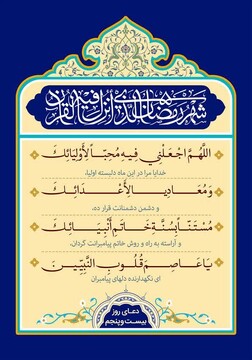 شَهْرُ رَمَضَانَ الَّذِي أُنْزِلَ فِيهِ الْقُرْآنُ
اللَّهُمَّ اجْعَلْنِي فِيهِ مُحِبّاً لِأَوْلِيَائِكَ
خدایا مرا در این ماه دلبسته اولیاء
وَ مُعَادِياً لِأَعْدَائِكَ
و دشمن دشمنانت قرار ده،
مُسْتَنّاً بِسُنَّةِ خَاتَمِ أَنْبِيَائِكَ
و آراسته به راه و روش خاتم پیامبرانت گردان،
يَا عَاصِمَ قُلُوبِ النَّبِيِّينَ
ای نگهدارنده دلهای پیامبران
دعای روز
بیست و پنجم